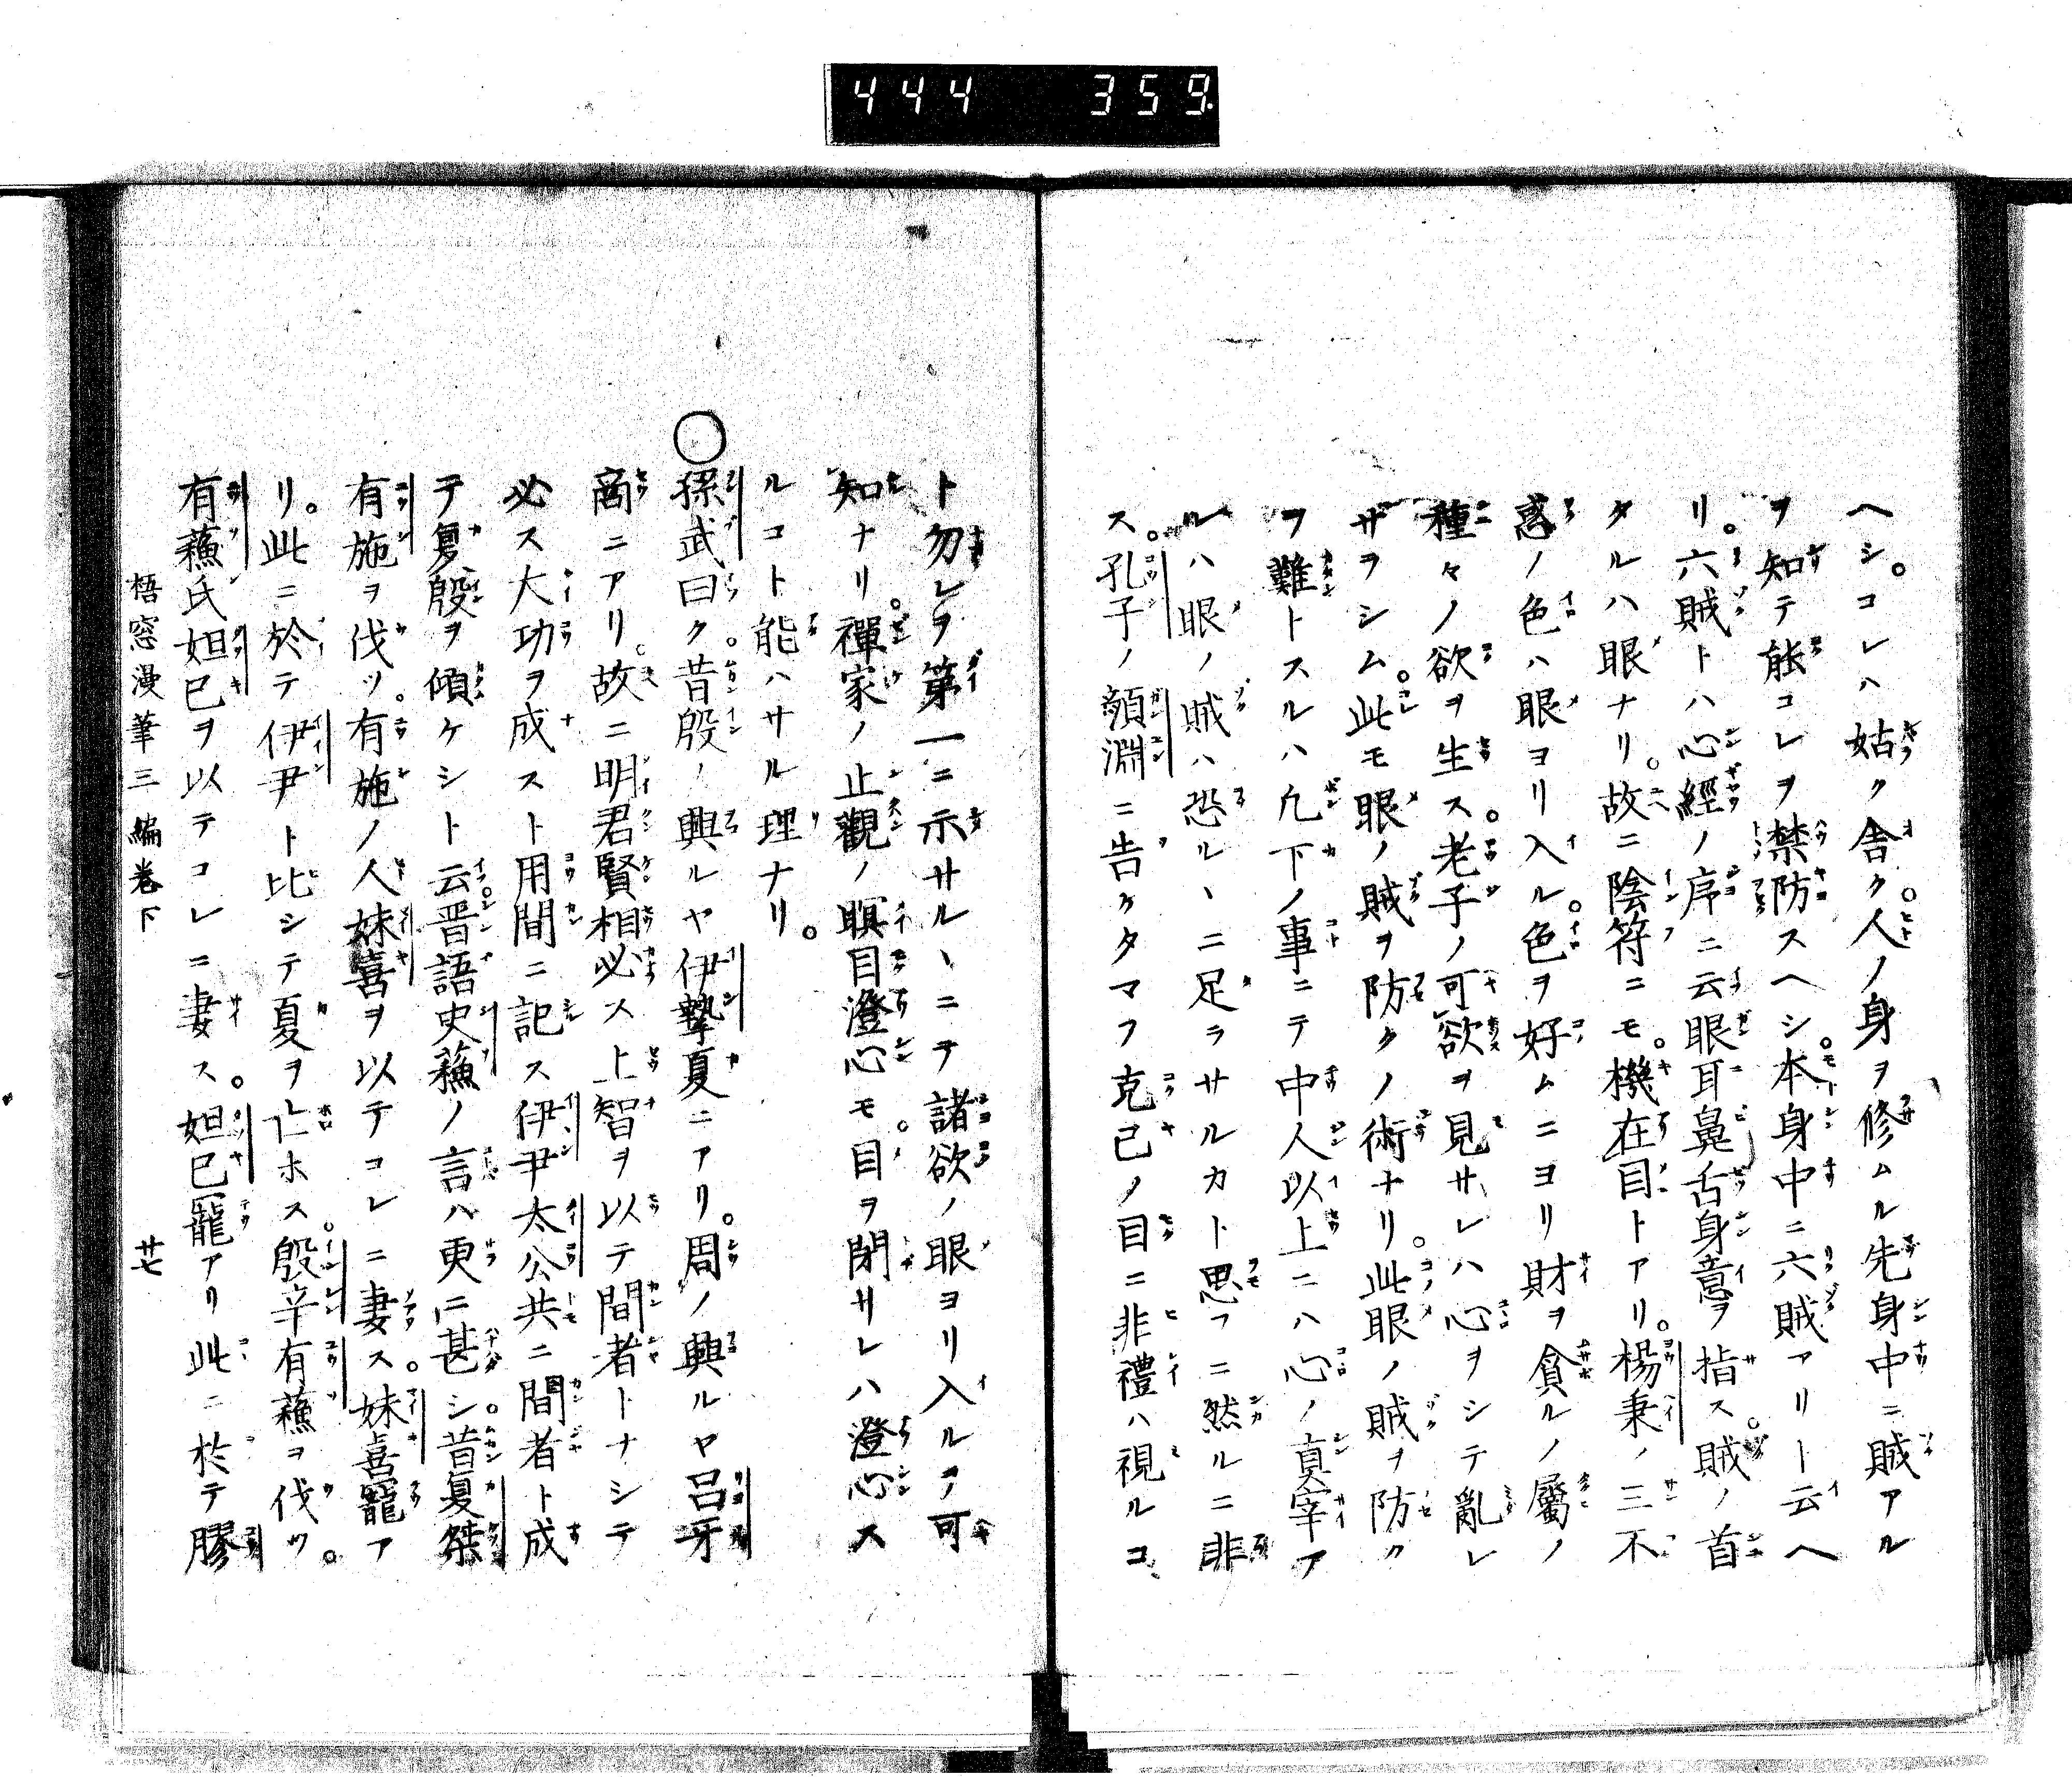 444 359.
ヘシ。コレハ姑ク舎ク。人ノ身ヲ修ムル先身中ニ賊アル
ヲ知テ能コレヲ禁防スヘシ。本身中ニ六賊アリト云ヘ
リ。六賊トハ心經ノ序ニ云眼耳鼻舌身意ヲ指ス。賊ノ首
タルハ眼ナリ。故ニ陰符ニモ。機在目トアリ。楊秉ノ三不
惑ノ色ハ眼ヨリ入ル。色ヲ好ムニヨリ財ヲ貪ルノ屬ノ
種々ノ欲ヲ生ス。老子ノ可欲ヲ見サレハ心ヲシテ亂レ
ザヲシム。此モ眼ノ賊ヲ防クノ術ナリ。此眼ノ賊ヲ防ク
ヲ難トスルハ凢下ノ事ニテ中人以上ニハ心ノ真宰ア
ルハ眼ノ賊ハ恐ルヽニ足ラサルカト思フニ然ルニ非
ス。孔子ノ顔淵ニ告ケタマフ克己ノ目ニ非禮ハ視ルコ
ト勿レヲ第一ニ示サルヽニヲ諸欲ノ眼ヨリ入ルヲ可
知ナリ。禪家ノ止觀ノ瞑目澄心モ。目ヲ閉サレハ澄心ス
ルコト能ハサル理ナリ。
○孫武曰ク。昔殷ノ興ルヤ伊摯夏ニアリ。周ノ興ルヤ呂牙
商ニアリ。故ニ明君賢相必ス上智ヲ以テ間者トナシテ
必ス大功ヲ成スト用間ニ記ス伊尹太公共ニ間者ト成
テ夏殷ヲ傾ケシト云。晋語史蘓ノ言ハ更ニ甚シ。昔夏桀
有施ヲ伐ツ。有施ノ人妹喜ヲ以テコレニ妻ス。妹喜寵ア
リ。此ニ於テ伊尹ト比シテ夏ヲ亡ホス。殷辛有蘓ヲ伐ツ。
有蘓氏妲己ヲ以テコレニ妻ス。妲己寵アリ此ニ於テ膠
梧窓漫筆三編巻下 廿七